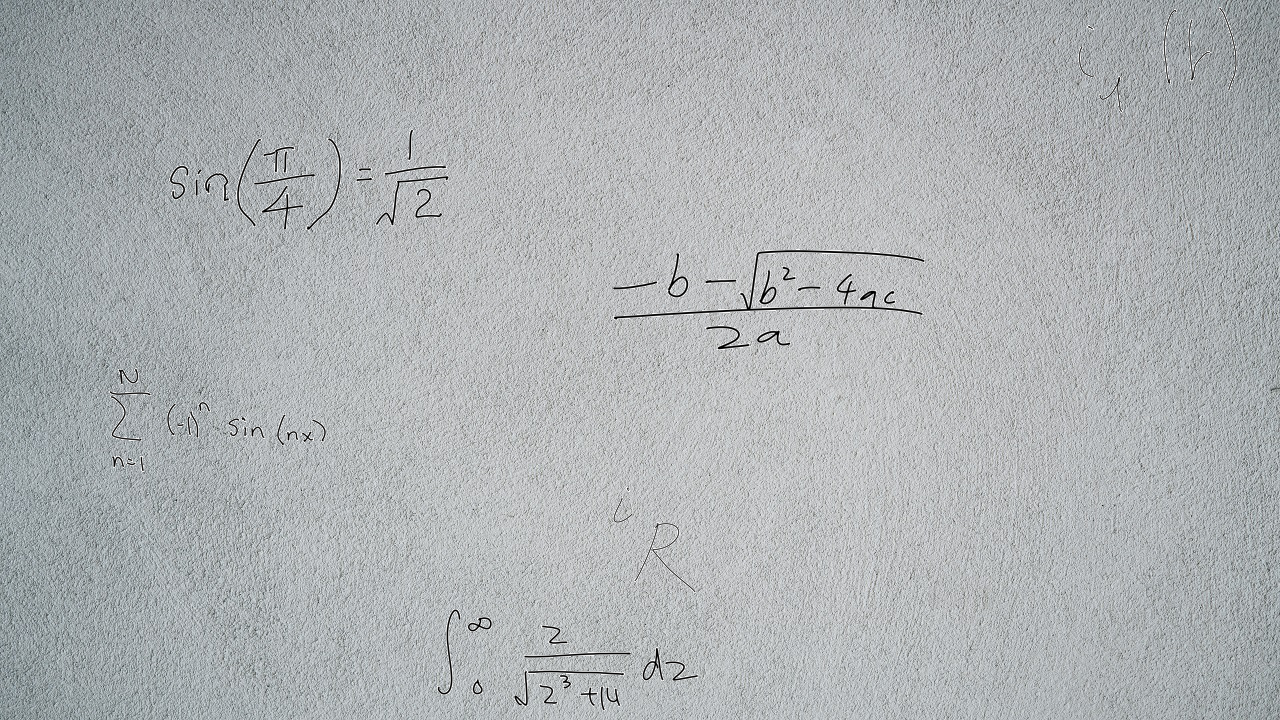 i_1(k)
sin(π/4) = 1/√2
(-b - √(b² - 4ac))/(2a)
∑_{n=1}^{N} (-1)ⁿ sin(nx)
i R
∫_0^∞ z/√(z³+14) dz